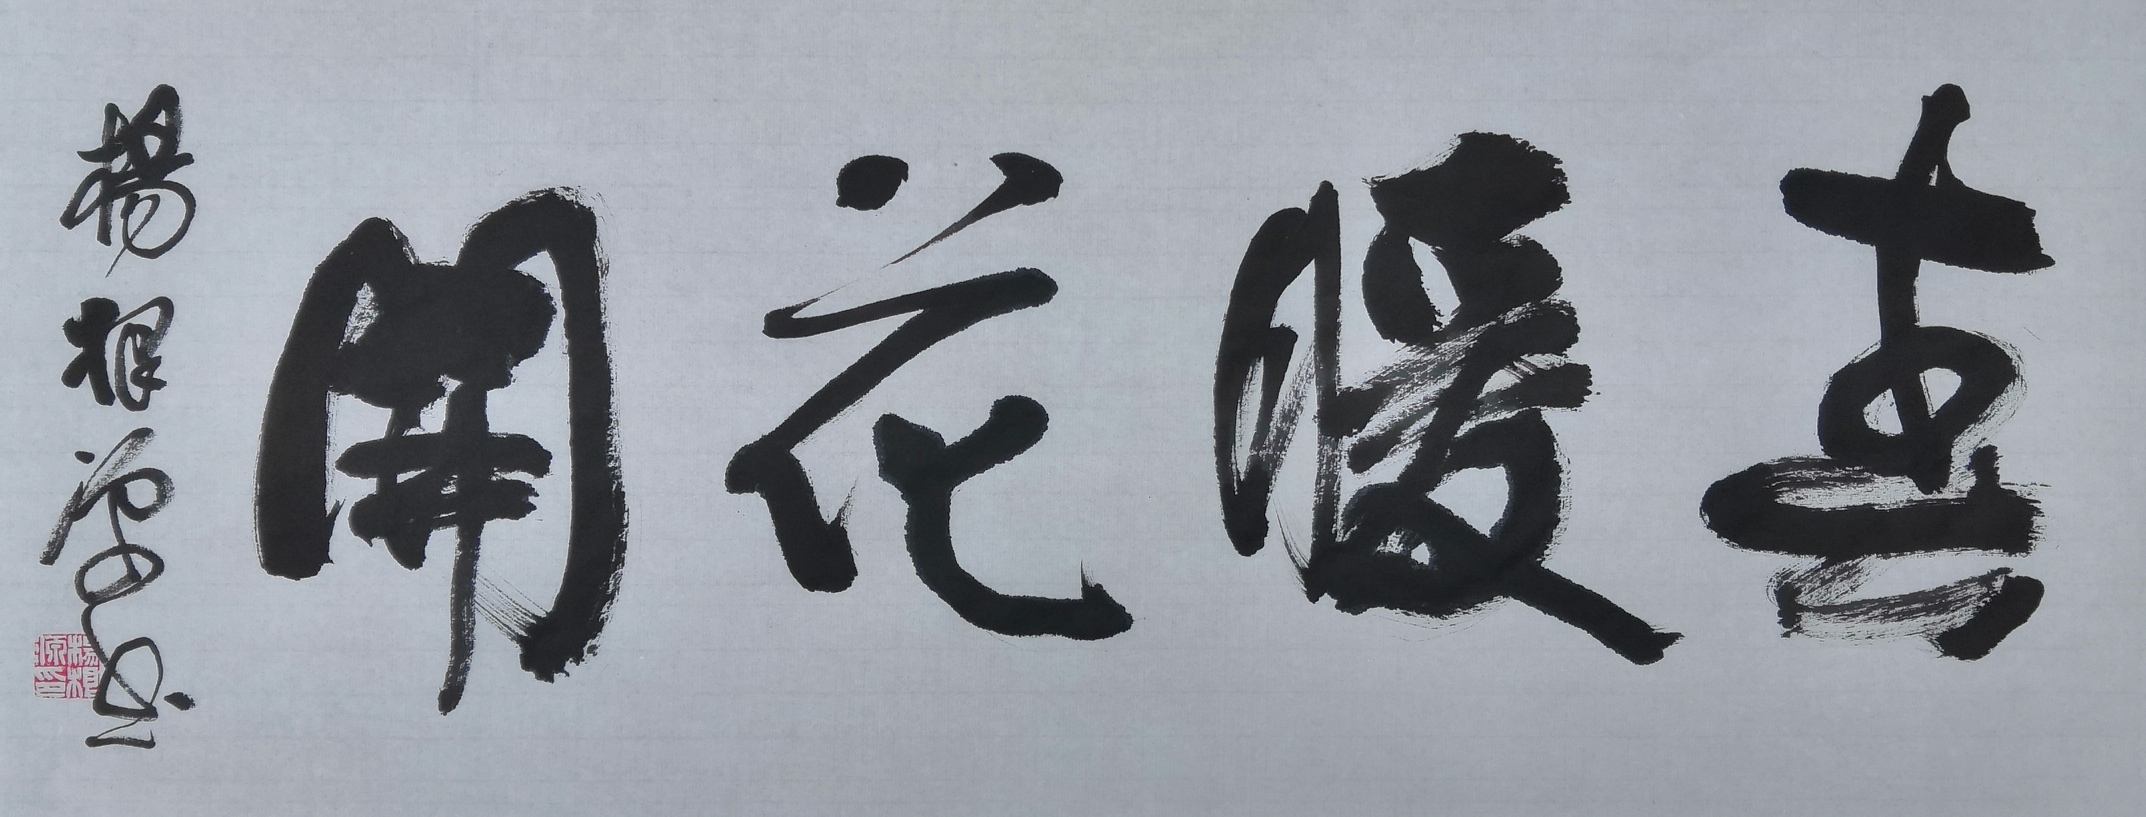 春暖花開
楊根源书
杨根源印